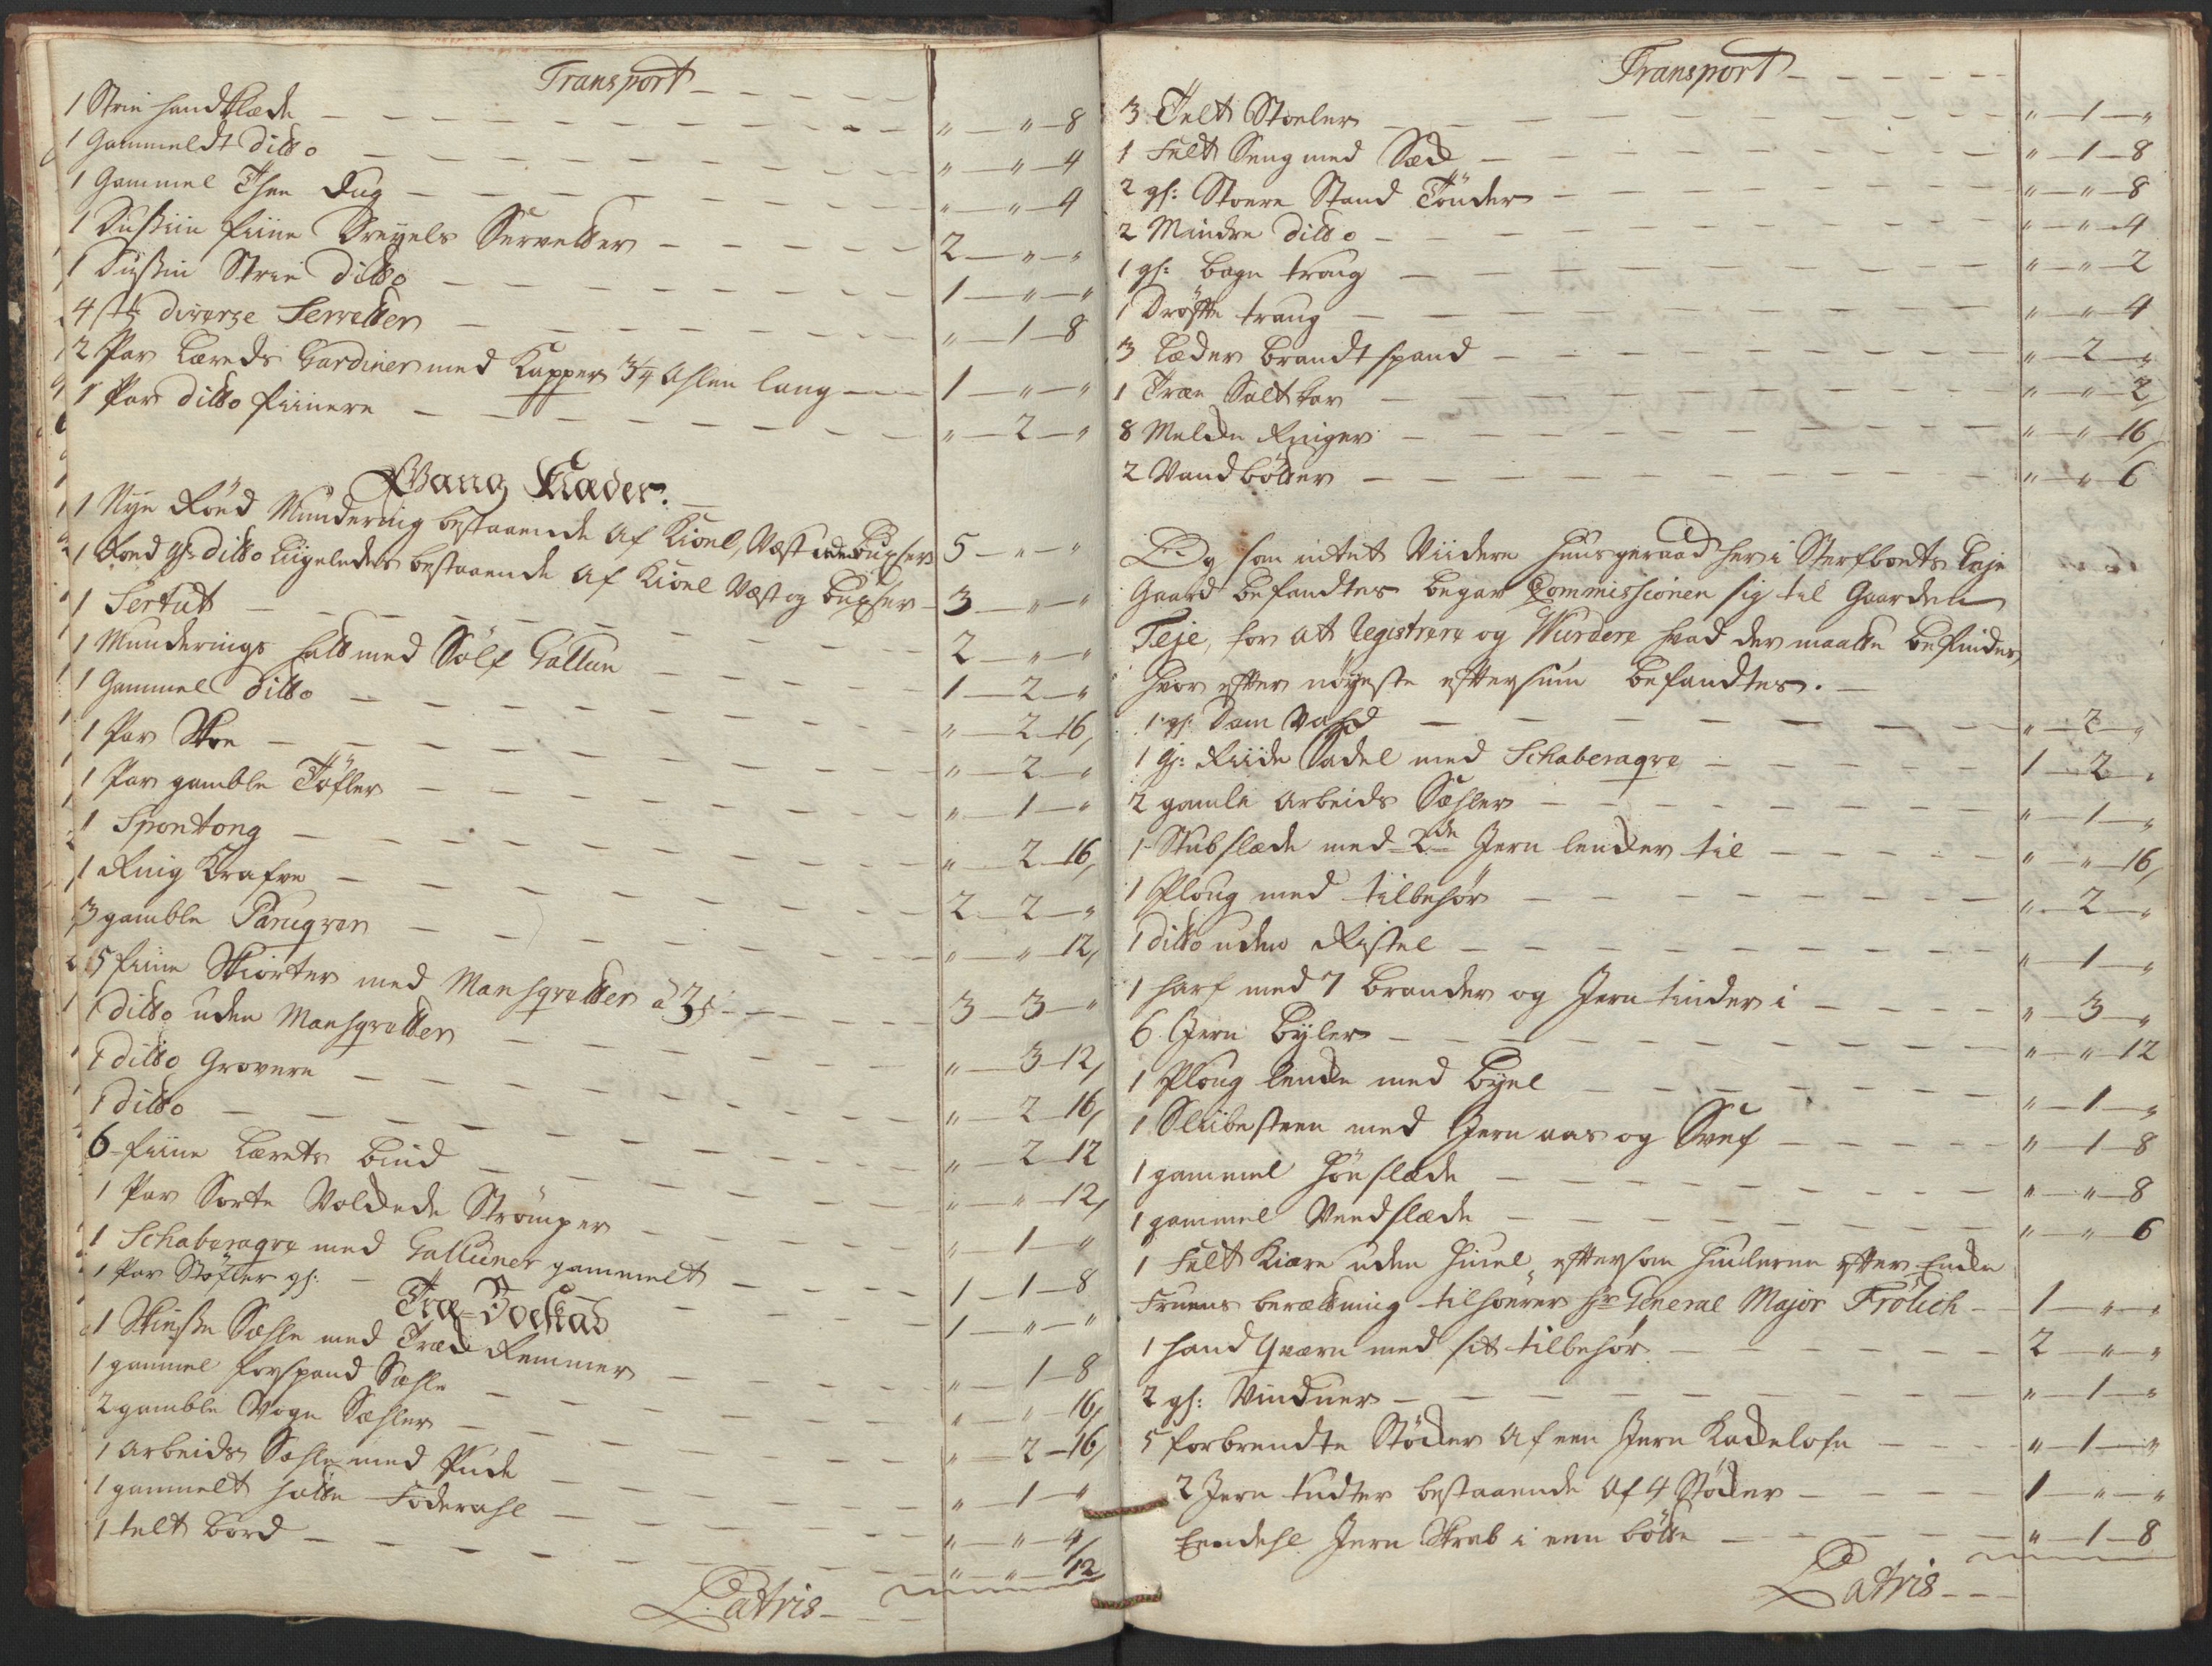 Transport
1 Strie Handklæde " — " — 8
1 Gammeldt ditto " — " — 4
1 Gammel Thee Dug " — " — 4
1 Dusiin fiine Dreyels Servetter 2 — " — "
1 Dusiin Strie ditto 1 — " — "
4 stk diverze Servetter " — 1 — 8
2 Par Lærreds Gardiner med Kapper 3/4 Ahlen lang 1 — " — "
1 Par ditto fiinere " — 2 — "
Gang Klæder.
1 Nye Röed Mundering bestaaende af Kioel, Væst uden Buxser 5 — " — "
1 Röed gl: ditto liigeledes bestaaende af Kioel Væst og Buxser 3 — " — "
1 Sertut 2 — " — "
1 Munderings Hatt med Sölf Gallun 1 — 2 — "
1 Gammel ditto " — 2 — 16
1 Par Skoe " — 2 — "
1 Par gamble Töfler " — 1 — "
1 Spontong " — 2 — 16
1 Ring Krafve 2 — 2 — "
3 gamble Parugver " — " — 12
5 fiine Skiorter med Mansqvetter à 3 3 — 3 — "
1 ditto uden Mansqvetter " — 3 — 12
1 ditto Grovere " — 2 — 16
1 ditto " — 2 — 12
6 fiine Lærets Bind " — " — 12
1 Par Sorte Voldede Strömper " — 1 — "
1 Schaberaqve med Galluner gammelt 1 — 1 — 8
1 Par Stöfler gl: 1 — " — "
Træ-Boeskab
1 Skiesse Sæhle med Træde Remmer " — 1 — 8
1 gammel forspand Sæhle " — " — 16
2 gamble Vogn Sæhler " — 2 — 16
1 Arbeids Sæhle med Pude " — 1 — "
1 gammelt Hatte Foderahl " — " — 4
1 telt Bord " — " — 12
Latris
Transport
3 Telt Stoeler " — 1 — "
1 Felt Seng med Sæck " — 1 — 8
2 gl: Stoere Stand Tönder " — " — 8
2 Mindre ditto " — " — 4
1 gl: Bage traug " — " — 2
1 Dröfte traug " — " — 4
3 Læder Brandtspand " — 2 — "
1 Træe Saltkar " — " — 2
8 Melcke Ringer " — " — 16
2 Vandbötter " — " — 6
Og som intet Viidere Huusgeraad her i Sterfboets Leje
Gaard befandtes begav Commissionen sig til Gaarden
Teje, for at Registrere og Wurdere hvad der maatte befindes
hvor efter nöyeste eftersiun befandtes.
1 gl: Dam Vahd " — 2 — "
1 gl: Riide Sadel med Schaberaqve 1 — 2 — "
2 gamle Arbeids Sæhler " — 1 — "
1 Stubslæde med 2de Jern lencker til " — " — 16
1 Ploug med tilbehör " — 2 — "
1 ditto uden Ristel " — 1 — "
1 Harf med 7 Brander og Jern tinder i " — 3 — "
6 Jern Byler " — " — 12
1 Ploug lencke med Byel " — 1 — "
1 Sliibesteen med Jern aas og Svef " — 1 — 8
1 gammel Höeslæde " — " — 8
1 gammel Veedslæde " — " — 6
1 Felt Kiære uden Hiuel, eftersom Hiulerne efter Encke
Fruens berætning tilhoerer Hr General Major Frölich 1 — " — "
1 Hand qværn med sit tilbehör 2 — " — "
2 gl: Vinduer " — 1 — "
5 forbrendte Stöcker af een Jern Kackelofn " — 1 — "
2 Jern tudter bestaaende af 4 Stöcker 1 — " — "
Eendehl Jern Skrab i een bötte " — 1 — 8
Latris